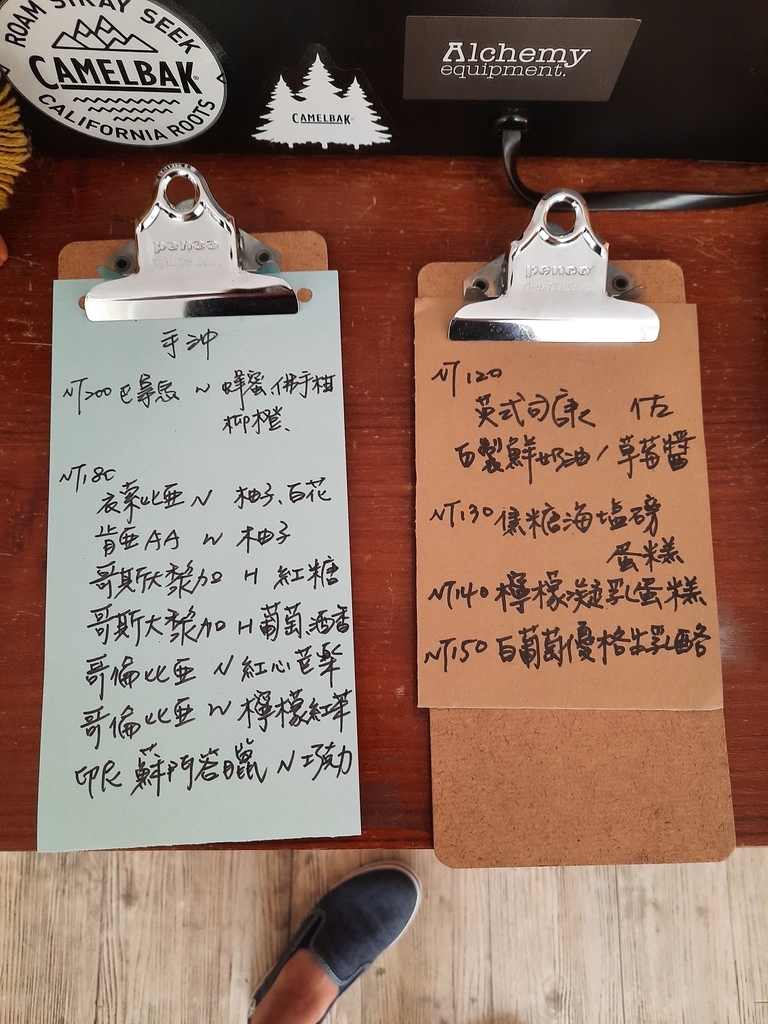 ROAM STRAY SEEK
CAMELBAK
CALIFORNIA ROOTS
CAMELBAK
Alchemy
equipment.
penco
手沖
NT200 巴拿馬 N 蜂蜜、佛手柑
柳橙、
NT180
衣索比亞 N 柚子、百花
肯亞AA W 柚子
哥斯大黎加 H 紅糖
哥斯大黎加 H 葡萄酒香
哥倫比亞 N 紅心芭樂
哥倫比亞 W 檸檬紅茶
印尼 蘇門答臘 N 巧克力
penco
NT120
英式司康 佐
自製鮮奶油/草莓醬
NT130 焦糖海塩磅
蛋糕
NT140 檸檬凝乳蛋糕
NT150 白葡萄優格生乳酪